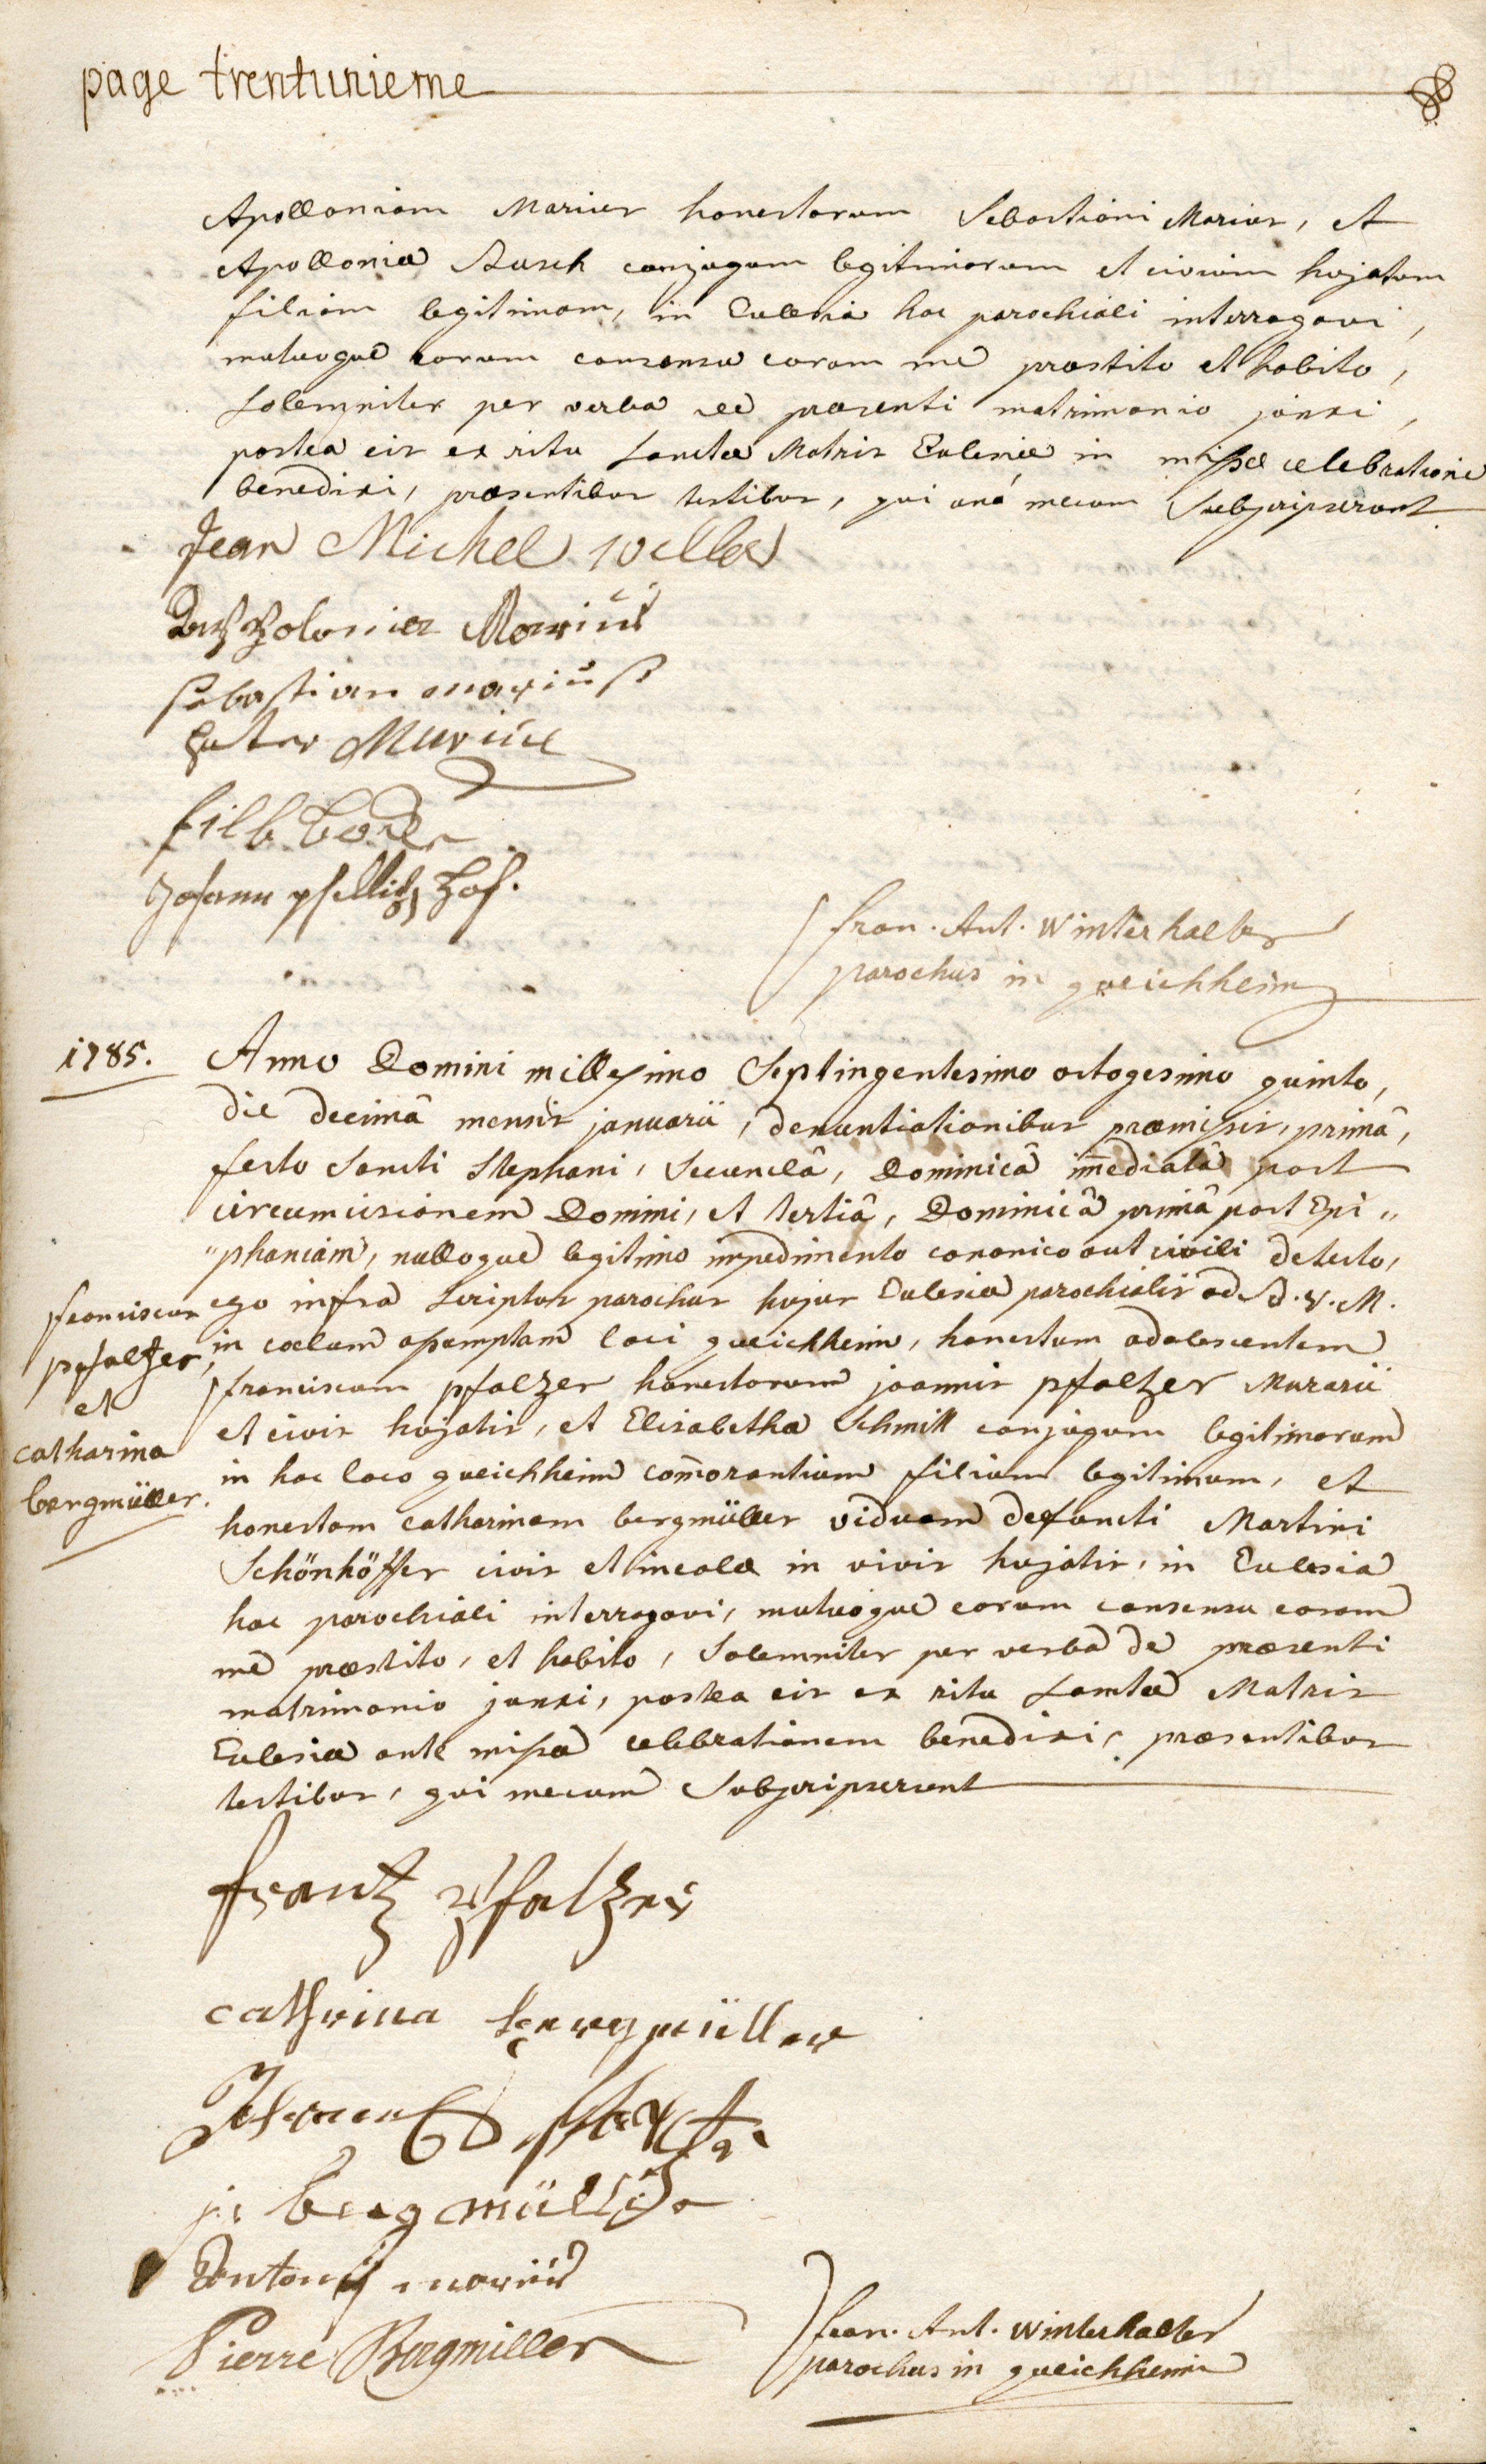 page trenturieme
Apolloniam Marius honestorum Sebastiani Marius, et
Apolloniæ Busch conjugum legitimorum et civium hujatum
filiam legitimam, in Ecclesia hac parochiali interrogavi,
mutuoque eorum consensu coram me præstito et habito,
solemniter per verba de præsenti matrimonio junxi,
postea eis ex ritu sanctæ Matris Ecclesiæ in missæ celebratione
benedixi, præsentibus testibus, qui unà mecum subscripserunt
Jean Michel
Marius
sebastian mariuß
Marius
Johann
fran. Ant. Winterhalter
parochus in queichheim
1785.
Anno Domini millesimo Septingentesimo octogesimo quinto,
die decimâ mensis januarii, denuntiationibus præmissis, primâ,
festo Sancti Stephani, Secundâ, Dominicâ im̄ediatâ post
circumcisionem Domini, et tertiâ, Dominicâ primâ post Epi„
„phaniam, nulloque legitimo impedimento canonico aut civili detecto,
ego infra scriptus parochus hujus Ecclesiæ parochialis ad B.V.M.
in cœlum assumptam loci queichheim, honestum adolescentem
franciscum pfalzer honestorum joannis pfaltzer Murarii
et civis hujatis, et Elisabetha Schmitt conjugum legitimorum
in hoc loco queichheim com̄orantium filium legitimum, et
honestam catharinam bergmüller viduam defuncti Martini
Schönhöffer civis et incolæ in vivis hujatis, in Ecclesia
hac parochiali interrogavi, mutuóque eorum consensu coram
me præstito, et habito, Solemniter per verba de præsenti
matrimonio junxi, postea eis ex ritu sanctæ Matris
Ecclesiæ ante missæ celebrationem benedixi, præsentibus
testibus, qui mecum subscripserunt
franciscus
pfaltzer,
et
catharina
bergmüller.
frantz pfalzer
cathrina bergmüller
bergmüller
Antoni marius
Pierre Bergmiller
fran. Ant. Winterhalter
parochus in queichheim